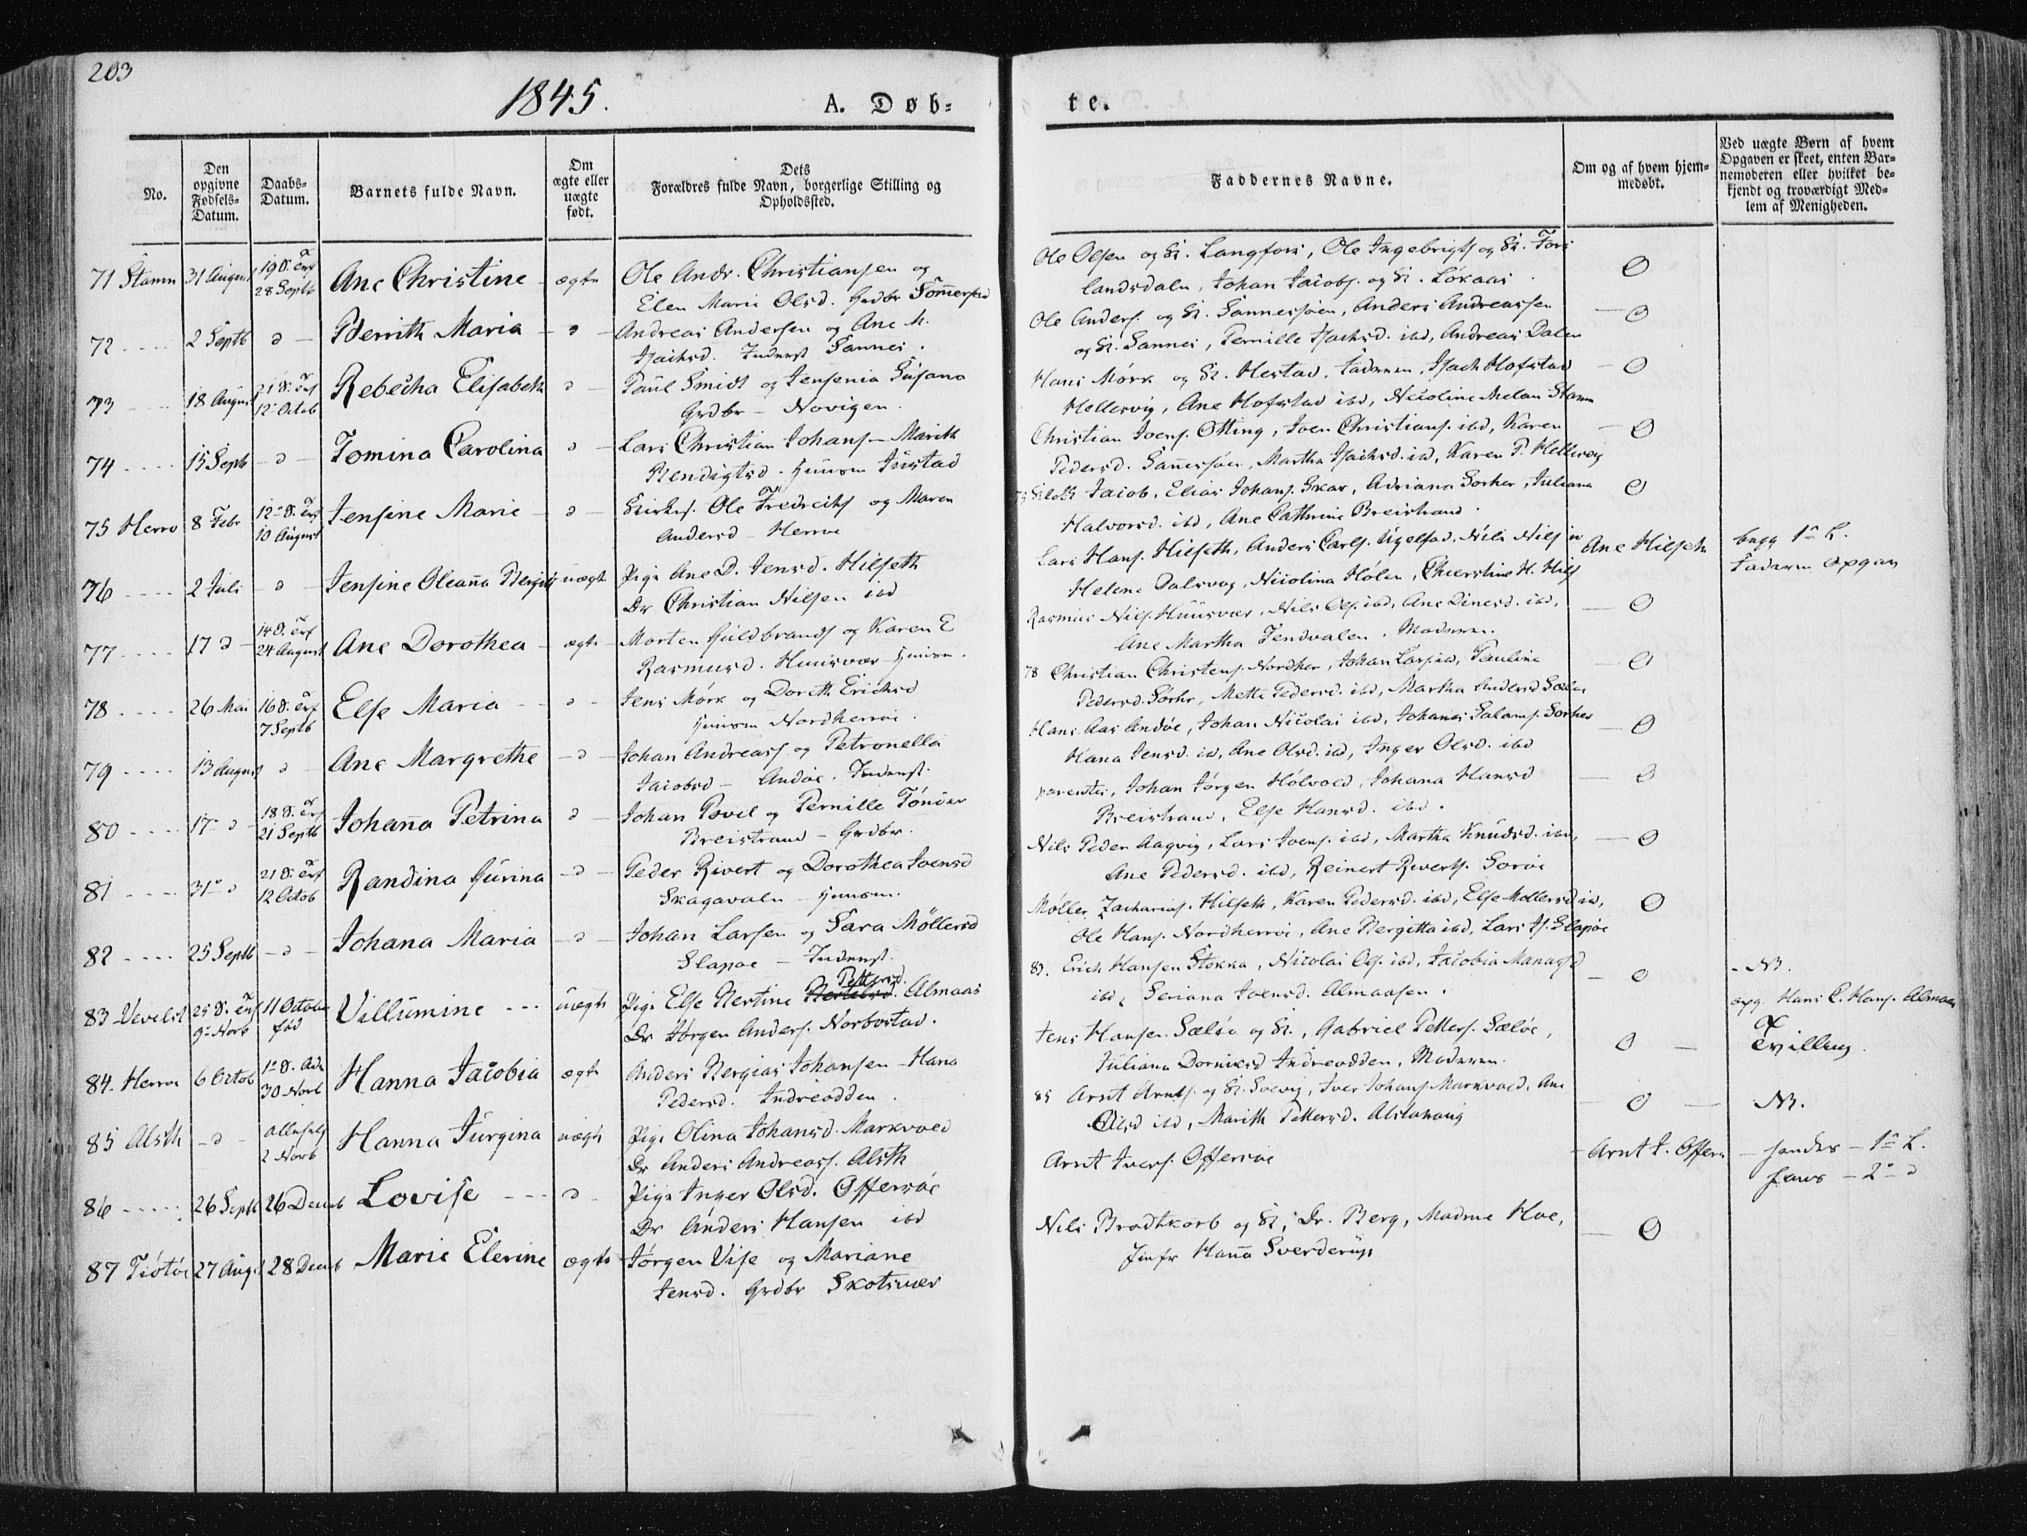 203
1845.
A. Døb-
te.
No.
Den opgivne Fødsels-Datum.
Daabs-Datum.
Barnets fulde Navn.
Om ægte eller uægte født.
Dets Forældres fulde Navn, borgerlige Stilling og Opholdssted.
Faddernes Navne.
Om og af hvem hjem-medøbt.
Ved uægte Børn af hvem Opgaven er skeet, enten Bar-nemoderen eller hvilket be-kjendt og troværdigt Med-lem af Menigheden.
71 Stamn 31 August 19 S. e Trf 28 Septb Ane Christine - ægte Ole Andr. Christiansen og
Elen Marie Olsd. Grdbr
Ole Olsen og H. Langfors, Ole Ingebrigts og H. Fors
landsdalen, Johan Jacobs. og H. Løkaas O
72 2 Septb d Berrith Maria - d - Andreas Andersen og Ane M.
Isachsd. Inderst Sannes.
Ole Anders. og H. Sannessøen, Anders Andreassen
og H. Sannes, Pernille Isachsd. ibd, Andreas Dalen O
73 18 August 21 S. e Trf 12 Octob Rebecha Elisabeth d - Paul Smidt og Jensenia Susana
Grdbr - Novigen.
Hans Mørk og H. Hestad, Faderen, Isach Hofstad
Hellesvig, Ane Hofstad ibd, Nicoline Melan Stamn O
74 15 Septb - d - Tomina Carolina d - Lars Christian Johans - Marith
Bendigtsd. Huusm Justad
Christian Joens. Otting, Joen Christians. ibd, Karen
Pedersd. Sannessøen, Martha Isachsd. ibd, Karen P. Hellesvig O
75 Herrø 8 Febr 12 S. e Trf 10 August Jensine Marie - d - Ole Fredrichs og Maren
Andersd - Herrøe
Jacob, Elias Johans. Skar, Adriana Sørher, Juliana
Halvorsd. ibd, Ane Cathrine Breistrand. O
76 2 Juli - d - Jensine Oleanna uægte Pige Ane D. Jensd. Hilseth
Dr Christian Nilsen ibd
Lars Hans. Hilseth, Anders Carls. Nils Nils
Helene Dalsvog, Nicolina Holen, Ane Hilseth begg 1te L.
Faderen opgav
77 17 d - 14 S. e Trf 24 August Ane Dorothea - ægte Morten Guldbrands og Karen E
Rasmusd. Huusvær Huusm.
Rasmus Nils. Huusvær, Nils Ols. ibd, Ane Dinesd. ibd,
Ane Martha Tendvalen. Moderen. O
78 26 Mai 16 S. e Trf 7 Septb Else Maria - - d - Jens Mørk og Doreth Erichsd
Huusm Nordherrøe.
78 Christian Christens. Nordher, Johan Lars. ibd, Pauline
Pedersd. Sørhr, Mette Pedersd. ibd, Martha Andersd O
79 13 August d - Ane Margrethe - d - Johan Andreass og Petronella
Jacobsd - Andøe. Inderst.
Hans Aas Andøe, Johan Nicolai ibd, Johanes Salams. Sørher
Hana Jensd. ibd, Ane Olsd. ibd, Inger Olsd. ibd O
80 17 d 18 S. e Trf 21 Septb Johanna Petrina d - Johan Povel og Pernille Tønder
Breistrand - Grdbr.
parentes, Johan Jørgen Holvold, Johana Hansd
Breistrand, Else Hansd. ibd. O
81 31 d 21 S. e Trf 12 Octob Randina Gurina - d - Peder Rivert og Dorothea Joensd
Skagavaln - Huusm.
Nils Peder Aagvig, Lars Joens. ibd, Martha Knudsd. ibd,
Ane Pedersd. ibd, Reinert Riverts. Sorøe O
82 25 Septb - d - Johana Maria - d - Johan Larsen og Sara Möllersd
Slapøe - Inderst.
Møller Zacharias. Hilseth, Karen Pedersd. ibd, Else Mollersd ibd,
Ole Hans. Nordherrøe, Ane Bergitta ibd, Lars Is. Slapøe O
83 Vevelst 25 S. e Trf 9 Novb 11 October fød Villumine - - - uægte Pige Else Bertine Pettersd. Almaas
Dr Jørgen Anders. Norbostad.
83. Erich Hansen Stokka, Nicolai Ols. ibd, Jacobia Manasd
ibd, Seriana Joensd. Almaasen. O - NB.
opg. Hans C. Hans. Almaas
84. Herrøe 6 Octob 1te S. Adv 30 Novb Hanna Jacobia ægte Anders Bergias Johansen - Hana
Pedersd. Indreodden.
Jens Hansen Sæløe og H., Gabriel Petters. Sæløe,
Juliana Indreodden, Moderen. O - Tvilling.
85 Alsth - d - Allehelg 2 Novb Hanna Jurgina uægte Pige Olina Johansd. Markvold
Dr Anders Andreass. Alsth
85 Arnt Arnts. og H. Iver Johans. Markvold, Ane
Olsd ibd, Marith Pettersd. Alstahoug - O - NB.
86 26 Septb 26 Decmb Lovise - - - d - Pige Inger Olsd. Offersøe
Dr Anders Hansen ibd
Arnt Ivers. Offersøe - Arnt I. Offers - hendes - 1te L.
hans - 2de d
87 Tiøtøe 27 Aug 28 Decmb Marie Elerine ægte Jørgen Vise og Mariane
Jensd. Grdbr Skotsvær
Nils Brodtkorb og H., Dr. Berg, Madme Hoe,
Jmfr Hanna Sverdrup O